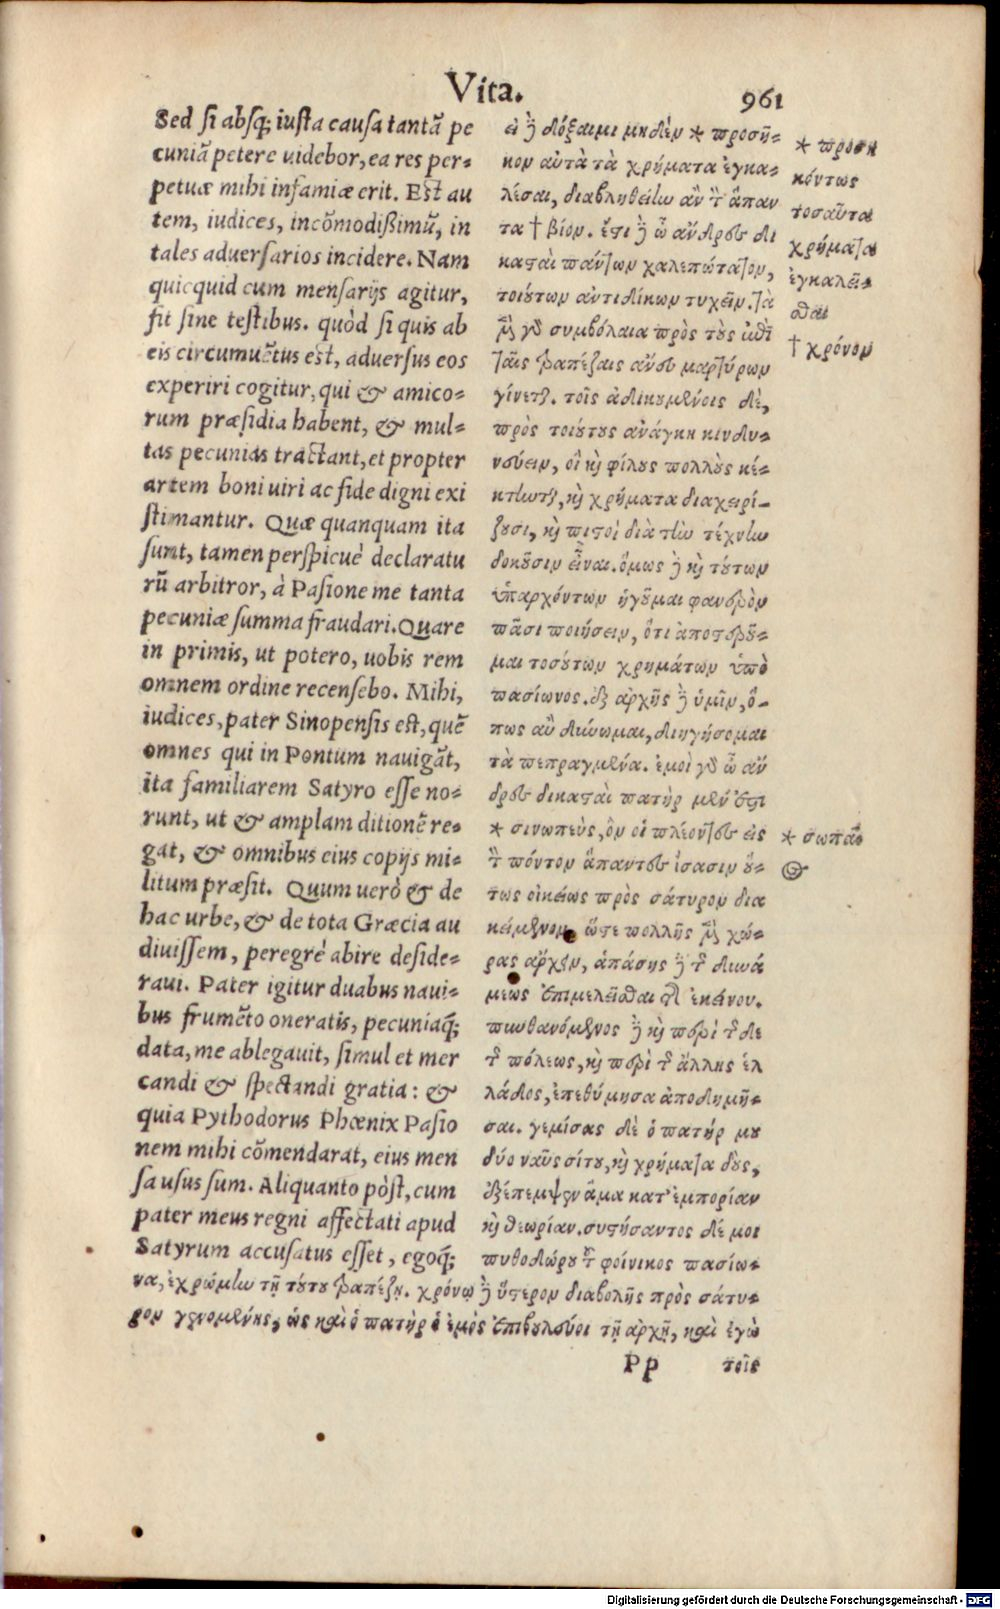 Vita.
961
Sed si absq; iusta causa tantā pe
cuniā petere uidebor, ea res per-
petuæ mihi infamiæ erit. Est au
tem, iudices, incōmodißimū, in
tales aduersarios incidere. Nam
quicquid cum mensarijs agitur,
fit sine testibus. quòd si quis ab
eis circumuētus est, aduersus eos
experiri cogitur, qui & amico-
rum præsidia habent, & mul-
tas pecunias tractant, et propter
artem boni uiri ac fide digni exi
stimantur. Quæ quanquam ita
sunt, tamen perspicuè declaratu
rū arbitror, à Pasione me tanta
pecuniæ summa fraudari. Quare
in primis, ut potero, uobis rem
omnem ordine recensebo. Mihi,
iudices, pater Sinopensis est, quē
omnes qui in Pontum nauigāt,
ita familiarem Satyro esse no-
runt, ut & amplam ditionē re-
gat, & omnibus eius copijs mi-
litum præsit. Quum uerò & de
hac urbe, & de tota Græcia au
diuissem, peregrè abire deside-
raui. Pater igitur duabus naui-
bus frumēto oneratis, pecuniaq́;
data, me ablegauit, simul et mer
candi & spectandi gratia: &
quia Pythodorus Phœnix Pasio
nem mihi cōmendarat, eius men
sa usus sum. Aliquanto pòst, cum
pater meus regni affectati apud
Satyrum accusatus esset, egoq́;
εἰ ἢ δόξαιμι μηδὲν * προσῆ-
κον αὐτὰ τὰ χρήματα ἐγκα-
λέσαι, διαβληθείην ἂν τὸν ἅπαν
τα † βίον. ἔστι δὲ ὦ ἄνδρες δι
κασταὶ πάντων χαλεπώτατον,
τοιούτων ἀντιδίκων τυχεῖν. τὰ
μὲν γὰρ συμβόλαια πρὸς τοὺς ἐπὶ
ταῖς τραπέζαις ἄνευ μαρτύρων
γίνεται. τοῖς ἀδικουμένοις δὲ,
πρὸς τοιούτους ἀνάγκη κινδυ-
νεύειν, οἳ καὶ φίλους πολλοὺς κέ-
κτηνται, καὶ χρήματα διαχειρί-
ζουσι, καὶ πιστοὶ διὰ τὴν τέχνην
δοκοῦσιν εἶναι. ὅμως δὲ καὶ τούτων
ὑπαρχόντων ἡγοῦμαι φανερὸν
πᾶσι ποιήσειν, ὅτι ἀποστεροῦ-
μαι τοσούτων χρημάτων ὑπὸ
πασίωνος. ἐξ ἀρχῆς δὲ ὑμῖν, ὅ-
πως ἂν δύνωμαι, διηγήσομαι
τὰ πεπραγμένα. ἐμοὶ γὰρ ὦ ἄν
δρες δικασταὶ πατὴρ μέν ἐστι
* σινωπεὺς, ὃν οἱ πλέοντες εἰς
τὸν πόντον ἅπαντες ἴσασιν οὕ-
τως οἰκείως πρὸς σάτυρον δια
κείμενον, ὥστε πολλῆς μὲν χώ-
ρας ἄρχειν, ἁπάσης δὲ τῆς δυνά
μεως ἐπιμελεῖσθαι τῆς ἐκείνου.
πυνθανόμενος δὲ καὶ περὶ τῆς δε
τῆς πόλεως, καὶ περὶ τῆς ἄλλης ἑλ
λάδος, ἐπεθύμησα ἀποδημῆ-
σαι. γεμίσας δὲ ὁ πατήρ μου
δύο ναῦς σίτου, καὶ χρήματα δοὺς,
ἐξέπεμψεν ἅμα κατ' ἐμπορίαν
καὶ θεωρίαν. συστήσαντος δέ μοι
πυθοδώρου τοῦ φοίνικος πασίω-
να, ἐχρώμην τῇ τούτου τραπέζῃ. χρόνῳ δὲ ὕστερον διαβολῆς πρὸς σάτυ-
ρον γενομένης, ὡς καὶ ὁ πατὴρ ὁ ἐμὸς ἐπιβουλεύοι τῇ ἀρχῇ, καὶ ἐγὼ
* προση
κόντως
τοσαῦτα
χρήματα
ἐγκαλεῖ-
σθαι
† χρόνον
* σωπαῖ
ος
Pp
τοῖς
Digitalisierung gefördert durch die Deutsche Forschungsgemeinschaft - DFG